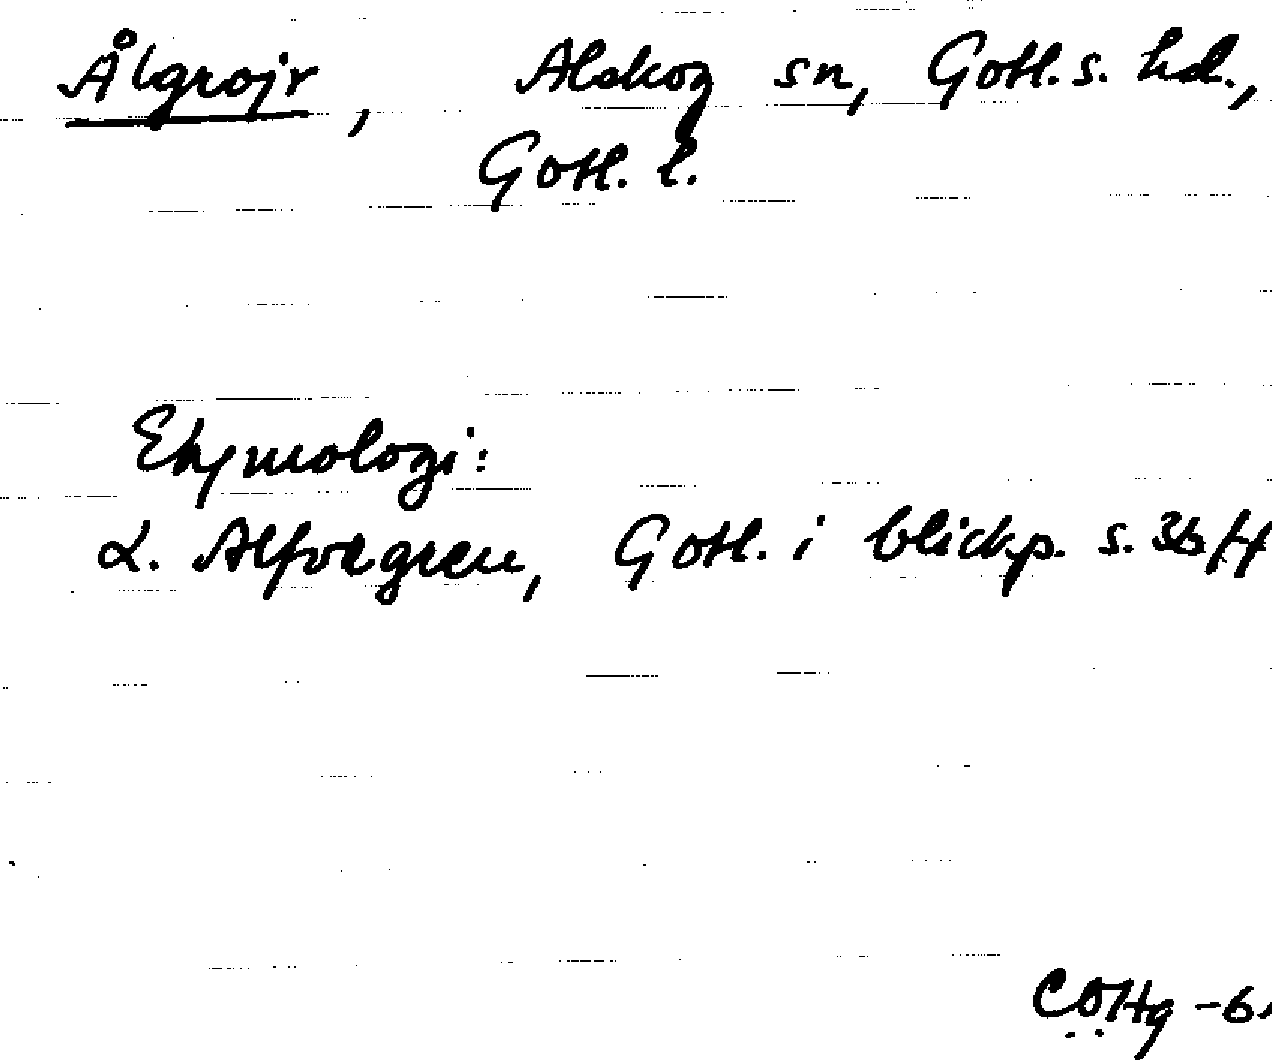 Ålgrojr, Alskog sn, Gotl. s. hd.,
Gotl. l.
Etymologi:
L. Alfvegren, Gotl. i blickp. s. 36 ff